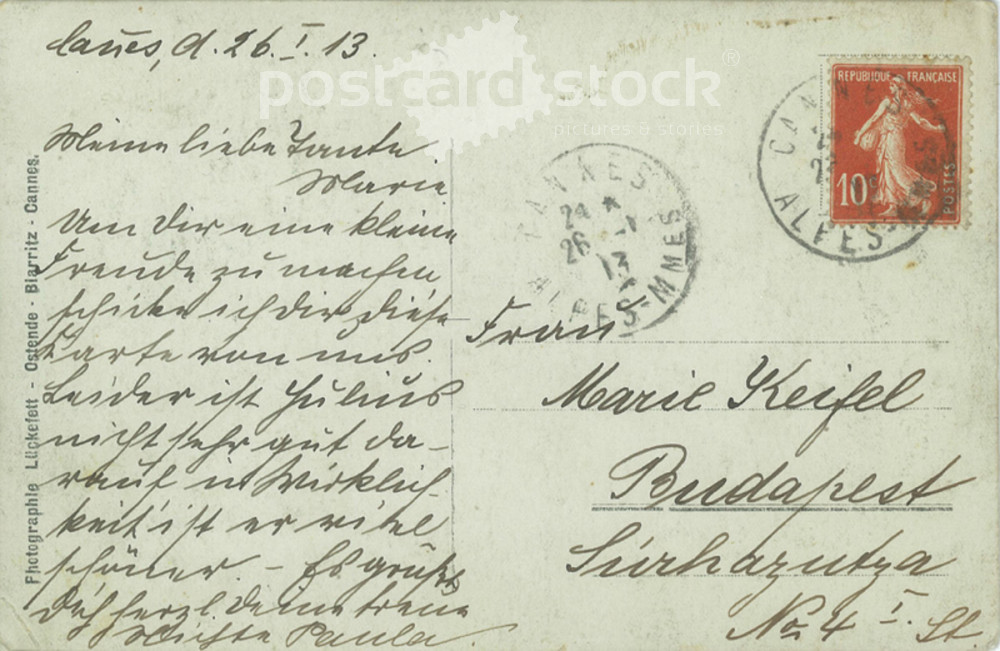 Canes, d. 26. I. 13.
Meine liebe Tante
Marie
Um Dir eine kleine
Freude zu machen
schicke ich dir diese
Karte von uns.
Leider ist Julius
nicht sehr gut da-
rauf in Wirklich-
keit ist er viel
schöner. – Es grüßt
Dich herzl deine treue
Nichte Paula
Photographie Lückefett - Ostende - Biarritz - Cannes.
postcard stock®
pictures & stories
CANNES
24 *
26 -1
13
ALPES-MMES
REPUBLIQUE FRANÇAISE
10c
POSTES
CANNES
ALPES-MMES
Frau
Marie Keifel
Budapest
No 4 I. St